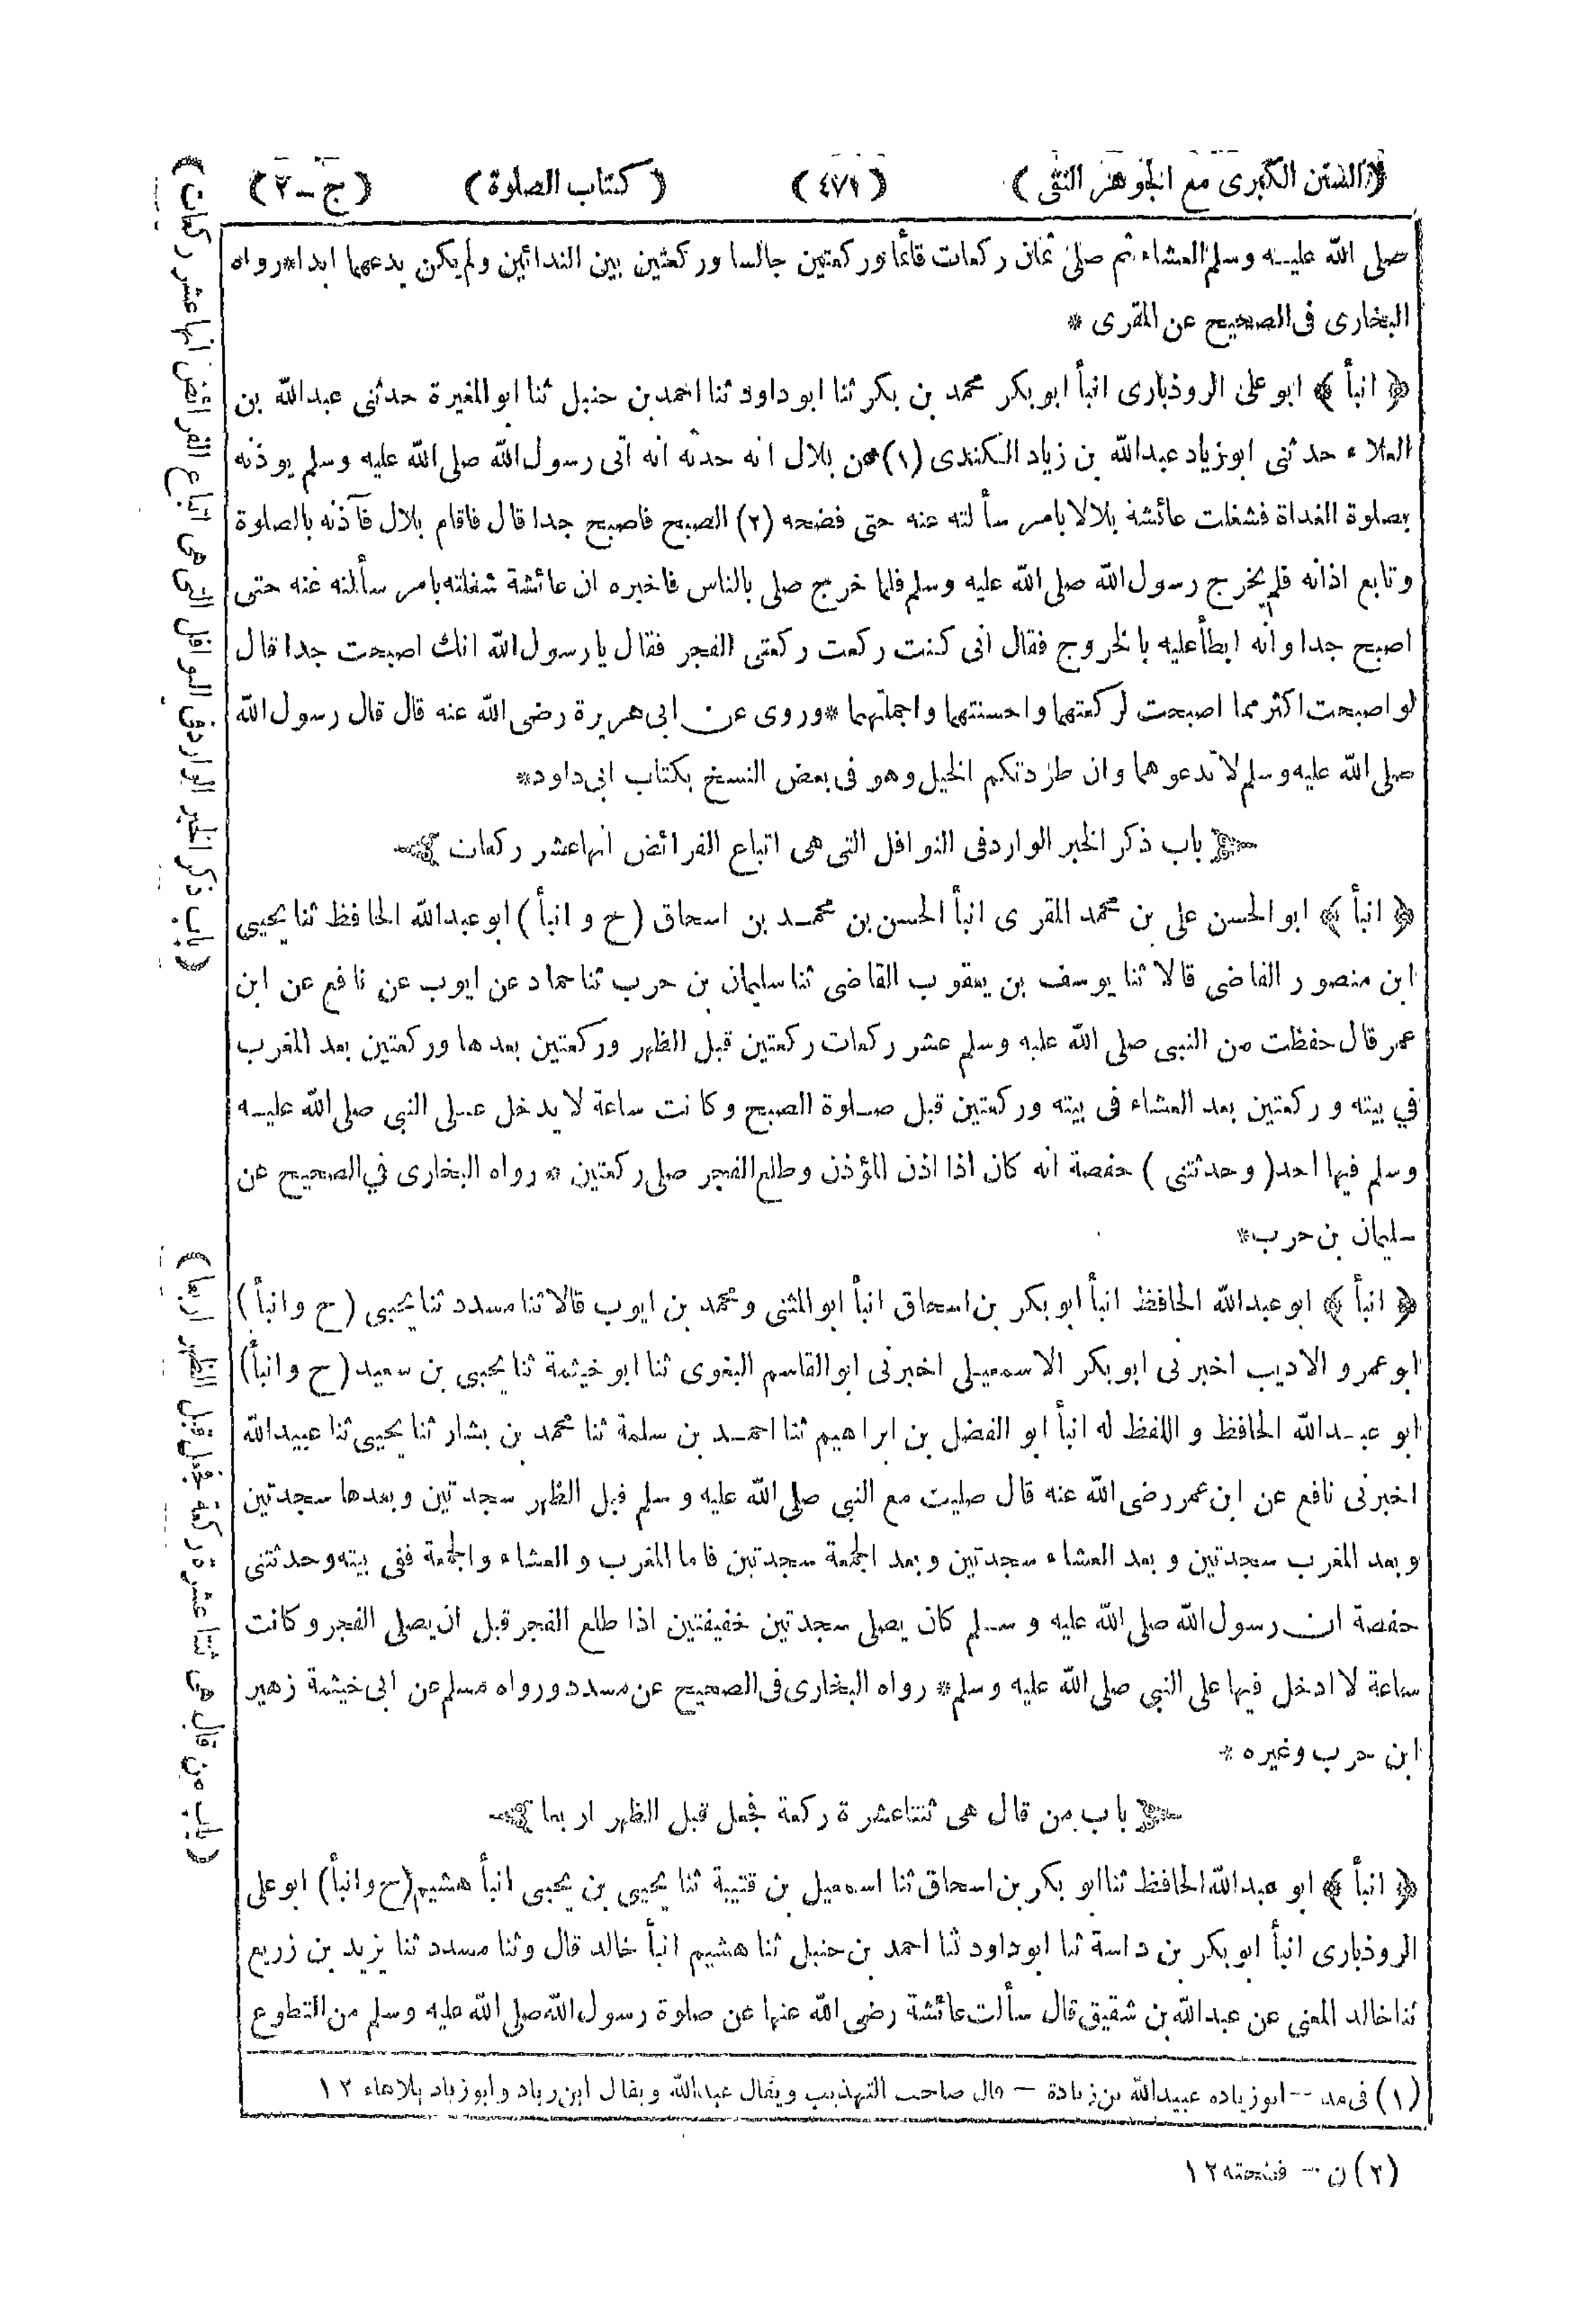 (السنن الكبرى مع الجوهر النقى) (٤٧١) (كتاب الصلوة) (ج-٢)
صلى الله عليه وسلم العشاء ثم صلى ثمان ركعات قائما وركعتين جالسا وركعتين بين الندائين ولم يكن يدعهما ابدا*رواه
البخارى فى الصحيح عن المقرى *
﴿ انبأ ﴾ ابو على الروذبارى انبأ ابو بكر محمد بن بكر ثنا ابو داود ثنا احمد بن حنبل ثنا ابو المغيرة حدثنى عبد الله بن
العلاء حدثنى ابو زياد عبد الله بن زياد الكندى (١) عن بلال انه حدثه انه اتى رسول الله صلى الله عليه وسلم يوذنه
بصلوة الغداة فشغلت عائشة بلالا بامر سألته عنه حتى فضحه (٢) الصبح فاصبح جدا قال فاقام بلال فآذنه بالصلوة
وتابع اذانه فلم يخرج رسول الله صلى الله عليه وسلم فلما خرج صلى بالناس فاخبره ان عائشة شغلته بامر سألته عنه حتى
اصبح جدا وانه ابطأ عليه بالخروج فقال انى كنت ركعت ركعتى الفجر فقال يا رسول الله انك اصبحت جدا قال
لو اصبحت اكثر مما اصبحت لركعتهما واحسنتهما واجملتهما *وروى عن ابى هريرة رضى الله عنه قال قال رسول الله
صلى الله عليه وسلم لا تدعوهما وان طردتكم الخيل وهو فى بعض النسخ بكتاب ابى داود*
باب ذكر الخبر الوارد فى النوافل التى هى اتباع الفرائض انها عشر ركعات
﴿ انبأ ﴾ ابو الحسن على بن محمد المقرى انبأ الحسن بن محمد بن اسحاق (ح و انبأ) ابو عبد الله الحافظ ثنا يحيى
ابن منصور القاضى قالا ثنا يوسف بن يعقوب القاضى ثنا سليمان بن حرب ثنا حماد عن ايوب عن نافع عن ابن
عمر قال حفظت من النبى صلى الله عليه وسلم عشر ركعات ركعتين قبل الظهر وركعتين بعدها وركعتين بعد المغرب
في بيته وركعتين بعد العشاء فى بيته وركعتين قبل صلوة الصبح وكانت ساعة لا يدخل على النبي صلى الله عليه
وسلم فيها احد (وحدثتنى) حفصة انه كان اذا اذن المؤذن وطلع الفجر صلى ركعتين * رواه البخارى في الصحيح عن
سليمان بن حرب*
﴿ انبأ ﴾ ابو عبد الله الحافظ انبأ ابو بكر بن اسحاق انبأ ابو المثنى ومحمد بن ايوب قالا ثنا مسدد ثنا يحيى (ح وانبأ)
ابو عمرو الاديب اخبرنى ابو بكر الاسمعيلى اخبرنى ابو القاسم البغوى ثنا ابو خيثمة ثنا يحيى بن سعيد (ح وانبأ)
ابو عبد الله الحافظ و اللفظ له انبأ ابو الفضل بن ابراهيم ثنا احمد بن سلمة ثنا محمد بن بشار ثنا يحيى ثنا عبيد الله
اخبرنى نافع عن ابن عمر رضى الله عنه قال صليت مع النبي صلى الله عليه وسلم قبل الظهر سجدتين وبعدها سجدتين
وبعد المغرب سجدتين وبعد العشاء سجدتين وبعد الجمعة سجدتين فاما المغرب والعشاء والجمعة ففى بيته وحدثتنى
حفصة ان رسول الله صلى الله عليه وسلم كان يصلى سجدتين خفيفتين اذا طلع الفجر قبل ان يصلى الفجر وكانت
ساعة لا ادخل فيها على النبي صلى الله عليه وسلم* رواه البخارى فى الصحيح عن مسدد ورواه مسلم عن ابى خيثمة زهير
ابن حرب وغيره *
باب من قال هى ثنتا عشرة ركعة فجعل قبل الظهر اربعا
﴿ انبأ ﴾ ابو عبد الله الحافظ ثنا ابو بكر بن اسحاق ثنا اسمعيل بن قتيبة ثنا يحيى بن يحيى انبأ هشيم (ح وانبأ) ابو على
الروذبارى انبأ ابو بكر بن داسة ثنا ابو داود ثنا احمد بن حنبل ثنا هشيم انبأ خالد قال وثنا مسدد ثنا يزيد بن زريع
ثنا خالد المعنى عن عبد الله بن شقيق قال سألت عائشة رضى الله عنها عن صلوة رسول الله صلى الله عليه وسلم من التطوع
(١) فى مد -- ابو زياده عبيد الله بن زيادة - قال صاحب التهذيب ويقال عبد الله ويقال ابن زياد وابو زياد بلا هاء ١٢
(٢) ن - فضحته ١٢
(باب ذكر الخبر الوارد فى النوافل التى هى اتباع الفرائض انها عشر ركعات)
(باب من قال هى ثنتا عشرة ركعة فجعل قبل الظهر اربعا)